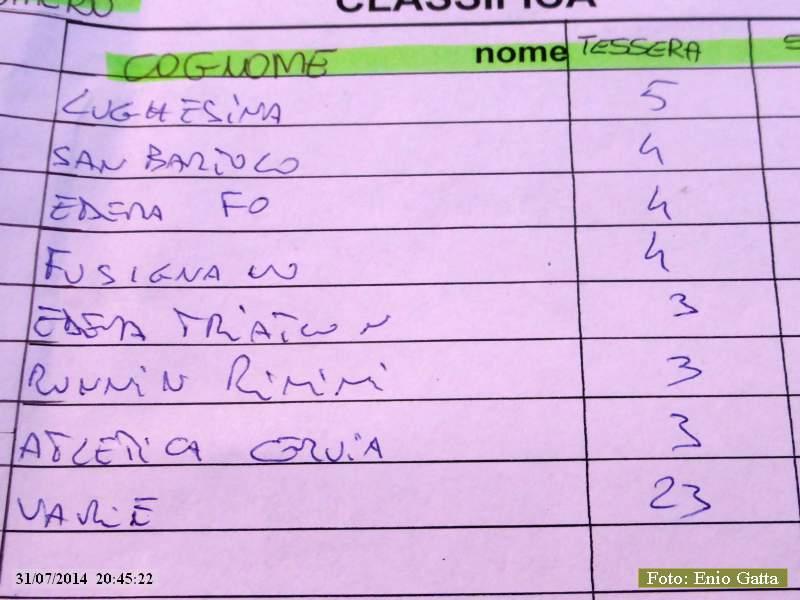 CLASSIFICA
COGNOME nome TESSERA
LUGHESINA 5
SAN BARTOLO 4
EDERA FO 4
FUSIGNANO 4
EDERA TRIATLON 3
RUNNIN RIMINI 3
ATLETICA CERVIA 3
VARIE 23
31/07/2014 20:45:22
Foto: Enio Gatta